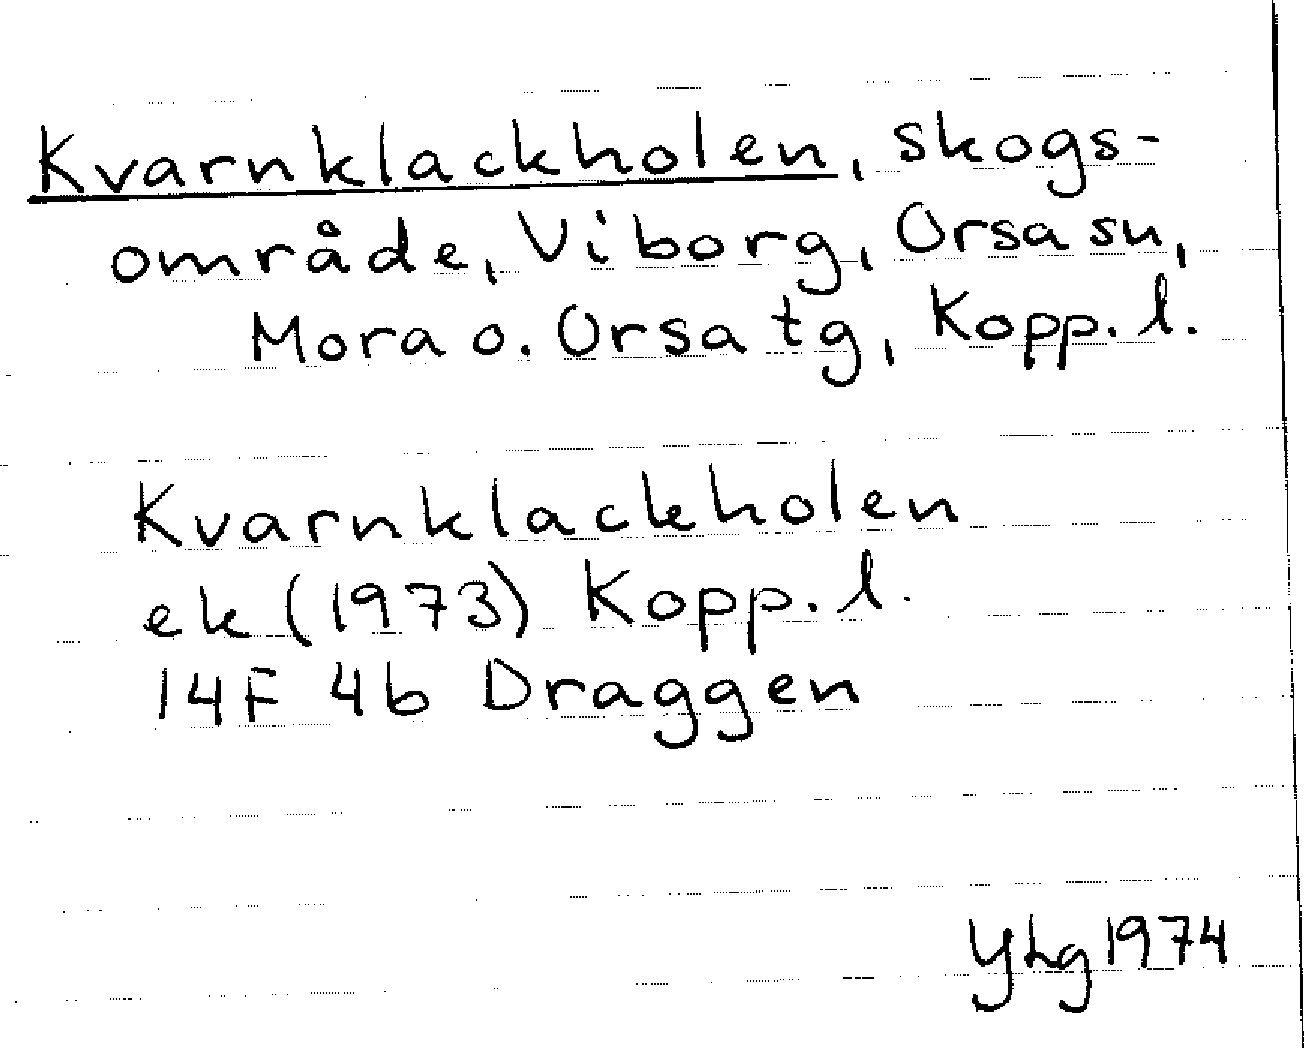 Kvarnklackholen, skogs-
område, Viborg, Orsa sn,
Mora o. Orsa tg, Kopp. l.
Kvarnklackholen
ek (1973) Kopp. l.
14F 4b Draggen
YLg 1974